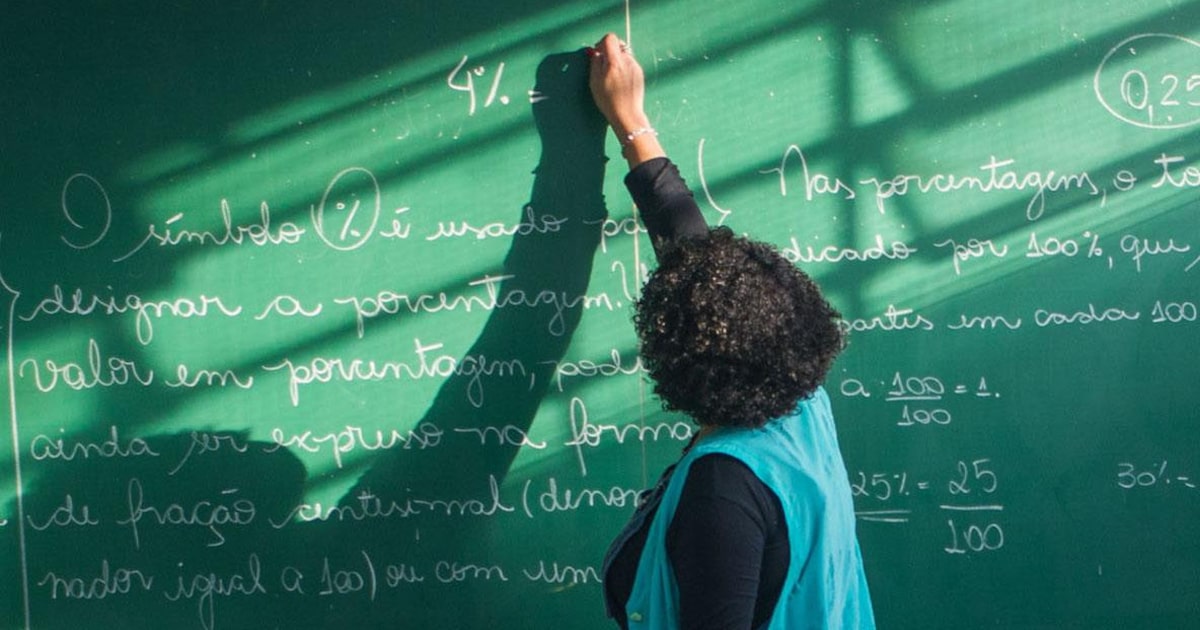 4% =
O símbolo % é usado pa
designar a porcentagem.
valor em porcentagem, pode
ainda ser expresso na forma
de fração centesimal (denomi
nador igual a 100) ou com um
0,25
Nas porcentagens, o to
dicado por 100%, que
partes em cada 100
a 100/100 = 1.
25% = 25/100
30% =